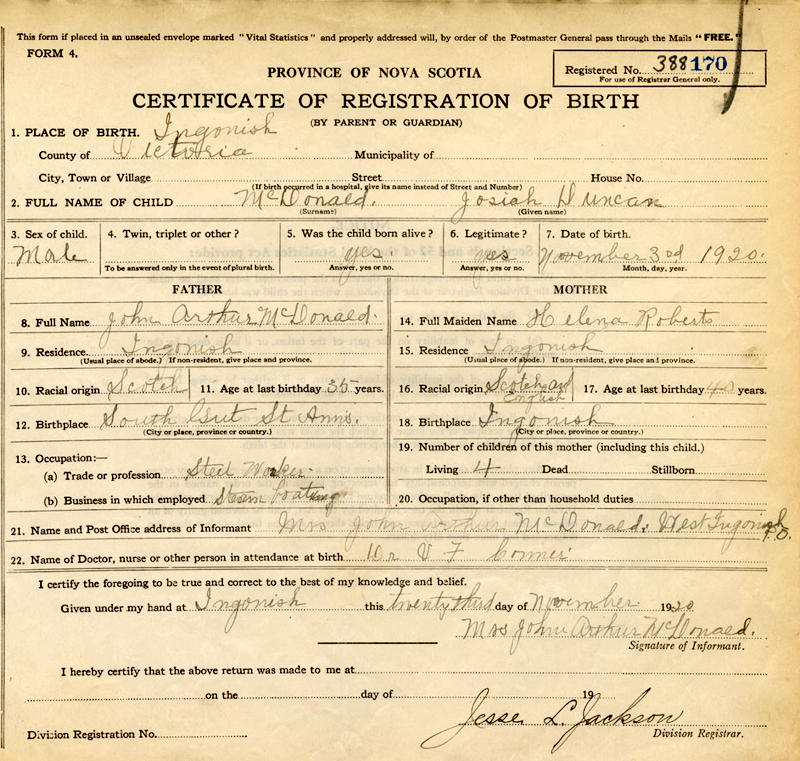 This form if placed in an unsealed envelope marked "Vital Statistics" and properly addressed will, by order of the Postmaster General pass through the Mails "FREE."
FORM 4.
PROVINCE OF NOVA SCOTIA
Registered No. 388170
For use of Registrar General only.
CERTIFICATE OF REGISTRATION OF BIRTH
(BY PARENT OR GUARDIAN)
1. PLACE OF BIRTH. Ingonish
County of Victoria Municipality of
City, Town or Village Street House No.
(If birth occurred in a hospital, give its name instead of Street and Number)
2. FULL NAME OF CHILD McDonald. Josiah Duncan
(Surname) (Given name)
3. Sex of child. 4. Twin, triplet or other? 5. Was the child born alive? 6. Legitimate? 7. Date of birth.
Male yes. yes November 3rd 1920.
To be answered only in the event of plural birth. Answer, yes or no. Answer, yes or no. Month, day, year.
FATHER MOTHER
8. Full Name John Arthur McDonald. 14. Full Maiden Name Helena Roberts
9. Residence. Ingonish 15. Residence Ingonish
(Usual place of abode.) If non-resident, give place and province. (Usual place of abode.) If non-resident, give place and province.
10. Racial origin Scotch 11. Age at last birthday 35 years. 16. Racial origin Scotch and English 17. Age at last birthday 40 years.
12. Birthplace South Gut St Anns. 18. Birthplace Ingonish
(City or place, province or country.) (City or place, province or country.)
13. Occupation:— 19. Number of children of this mother (including this child.)
(a) Trade or profession Steel Worker. Living 4 Dead Stillborn
(b) Business in which employed Steam boating 20. Occupation, if other than household duties
21. Name and Post Office address of Informant Mrs John Arthur McDonald. West Ingonish P.O.
22. Name of Doctor, nurse or other person in attendance at birth Dr V F Connor
I certify the foregoing to be true and correct to the best of my knowledge and belief.
Given under my hand at Ingonish this twenty third day of November 1920
Mrs John Arthur McDonald.
Signature of Informant.
I hereby certify that the above return was made to me at
on the day of 19
Jesse L. Jackson
Division Registration No. Division Registrar.